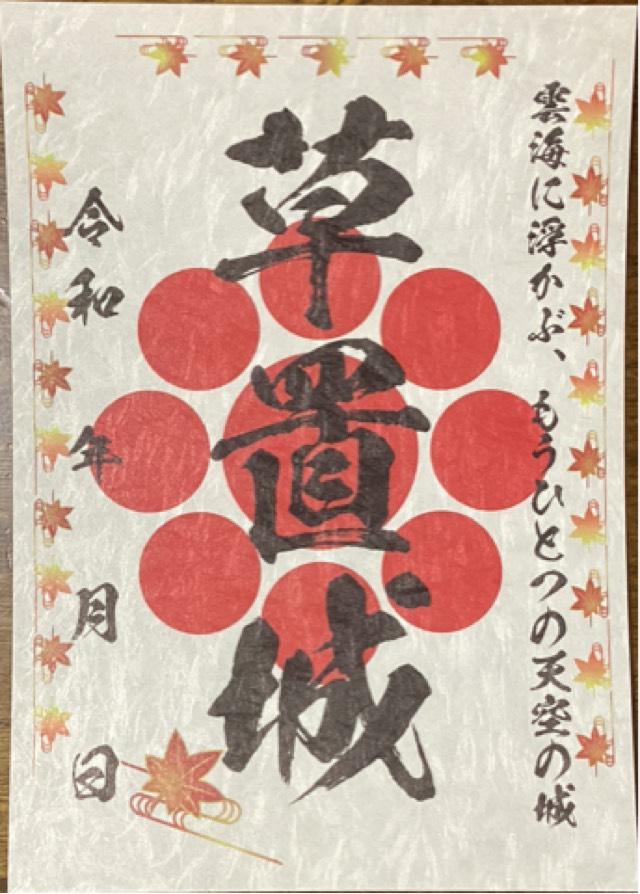 雲海に浮かぶ、もうひとつの天空の城
草置城
令和 年 月 日